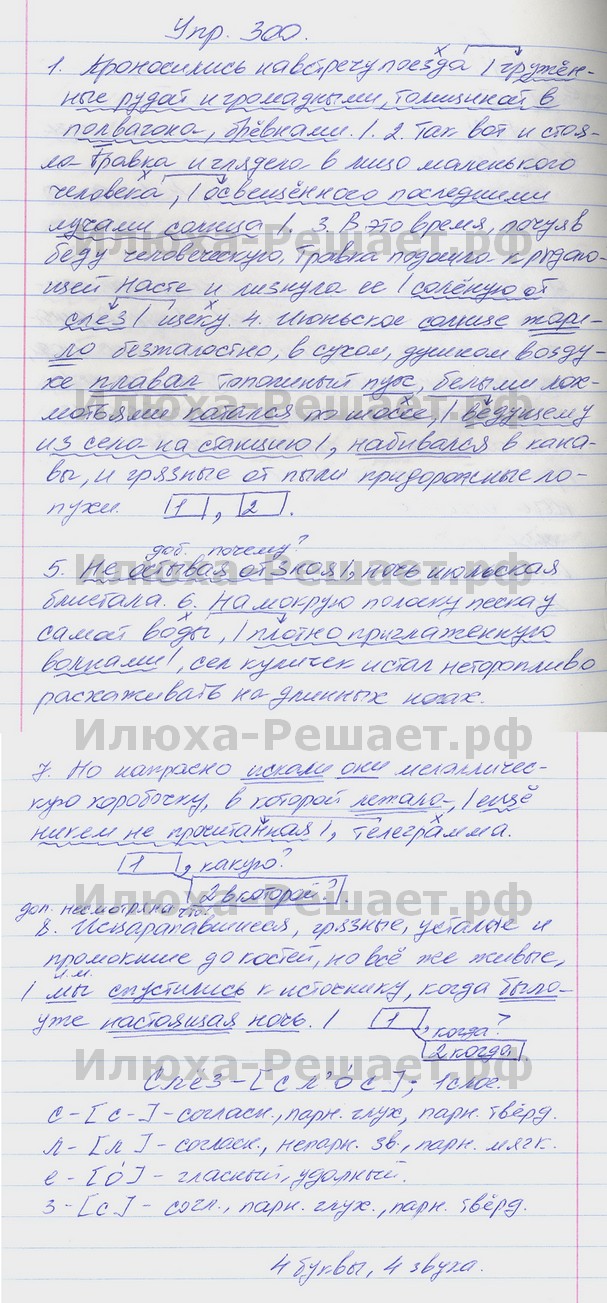 Упр. 300.
1. Проносились навстречу поезда, гружён-
ные рудой и громадными, толщиной в
полвагона, брёвнами. 2. Так вот и стоя-
ла Травка и глядела в лицо маленького
человека, освещённого последними
лучами солнца. 3. В это время, почуяв
Илюха-Решает.рф
беду человеческую, Травка подошла к рыдаю-
щей Насте и лизнула её солёную от
слёз щеку. 4. Июньское солнце жари-
ло безжалостно, в сухом, душном возду-
хе плавал тополиный пух, белыми лох-
Илюха-Решает.рф
мотьями катался по шоссе, ведущему
из села на станцию, набивался в кана-
вы, и грязные от пыли придорожные ло-
пухи. 1, 2.
доб. почему?
Илюха-Решает.рф
5. Не остывая от зноя, ночь июльская
блистала. 6. На мокрую полоску песка у
самой воды, плотно приглаженную
волнами, сел куличек и стал неторопливо
расхаживать на длинных ногах.
Илюха-Решает.рф
7. Но напрасно искали они металличес-
кую коробочку, в которой лежала, ещё
никем не прочитанная, телеграмма.
1, какую?
2 в которой?.
Илюха-Решает.рф
доп. несмотря на что?
8. Исцарапавшиеся, грязные, усталые и
промокшие до костей, но всё же живые,
мы спустились к источнику, когда было
уже настоящая ночь. 1, когда?
2 когда
Илюха-Решает.рф
Слёз - [с л' о́ с]; 1 слог.
с - [с] - согласн., парн. глух, парн. твёрд.
л - [л] - согласн., непарн. зв., парн. мягк.
е - [о́] - гласный, ударный.
Илюха-Решает.рф
з - [с] - согл., парн. глух., парн. твёрд.
4 буквы, 4 звука.